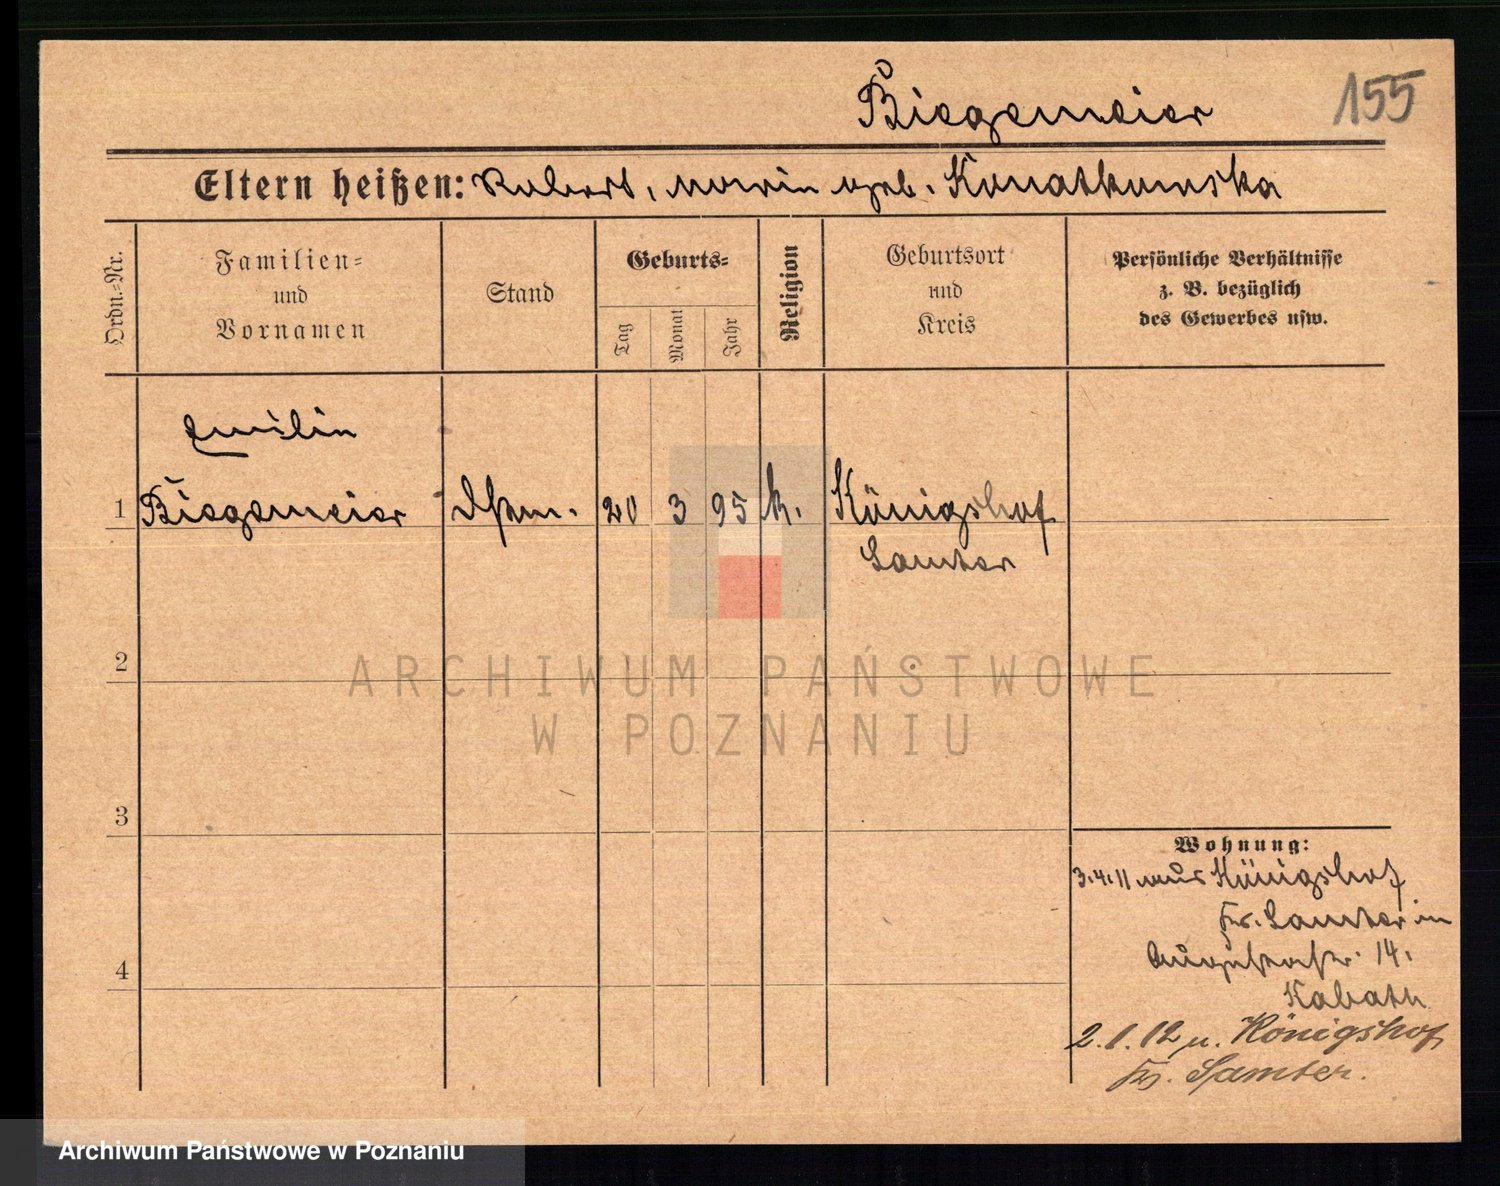 Biegemeier
155
Eltern heißen: Robert, Marie geb. Konatkowska
Ordn.-Nr.
Familien-
und
Vornamen
Stand
Geburts-
Tag
Monat
Jahr
Religion
Geburtsort
und
Kreis
Persönliche Verhältnisse
z. B. bezüglich
des Gewerbes usw.
Emilie
1 Biegemeier 20 3 95 k. Königshof
Samter
2
3
4
ARCHIWUM PAŃSTWOWE
W POZNANIU
Wohnung:
3.4.11 aus Königshof
Kr. Samter in
Augustastr. 14.
Kabath
2.1.12 n. Königshof
Kr. Samter.
Archiwum Państwowe w Poznaniu